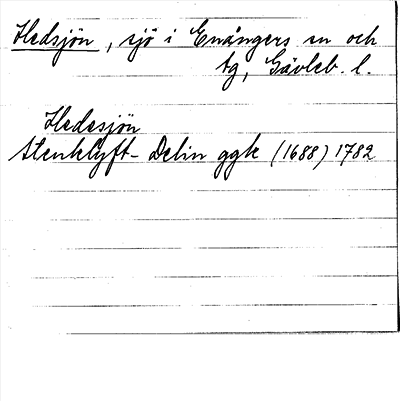 Hedsjön, sjö i Enångers sn och
tg, Gävleb. l.
Hedesjön
Stenklyft-Delin ggk (1688) 1782